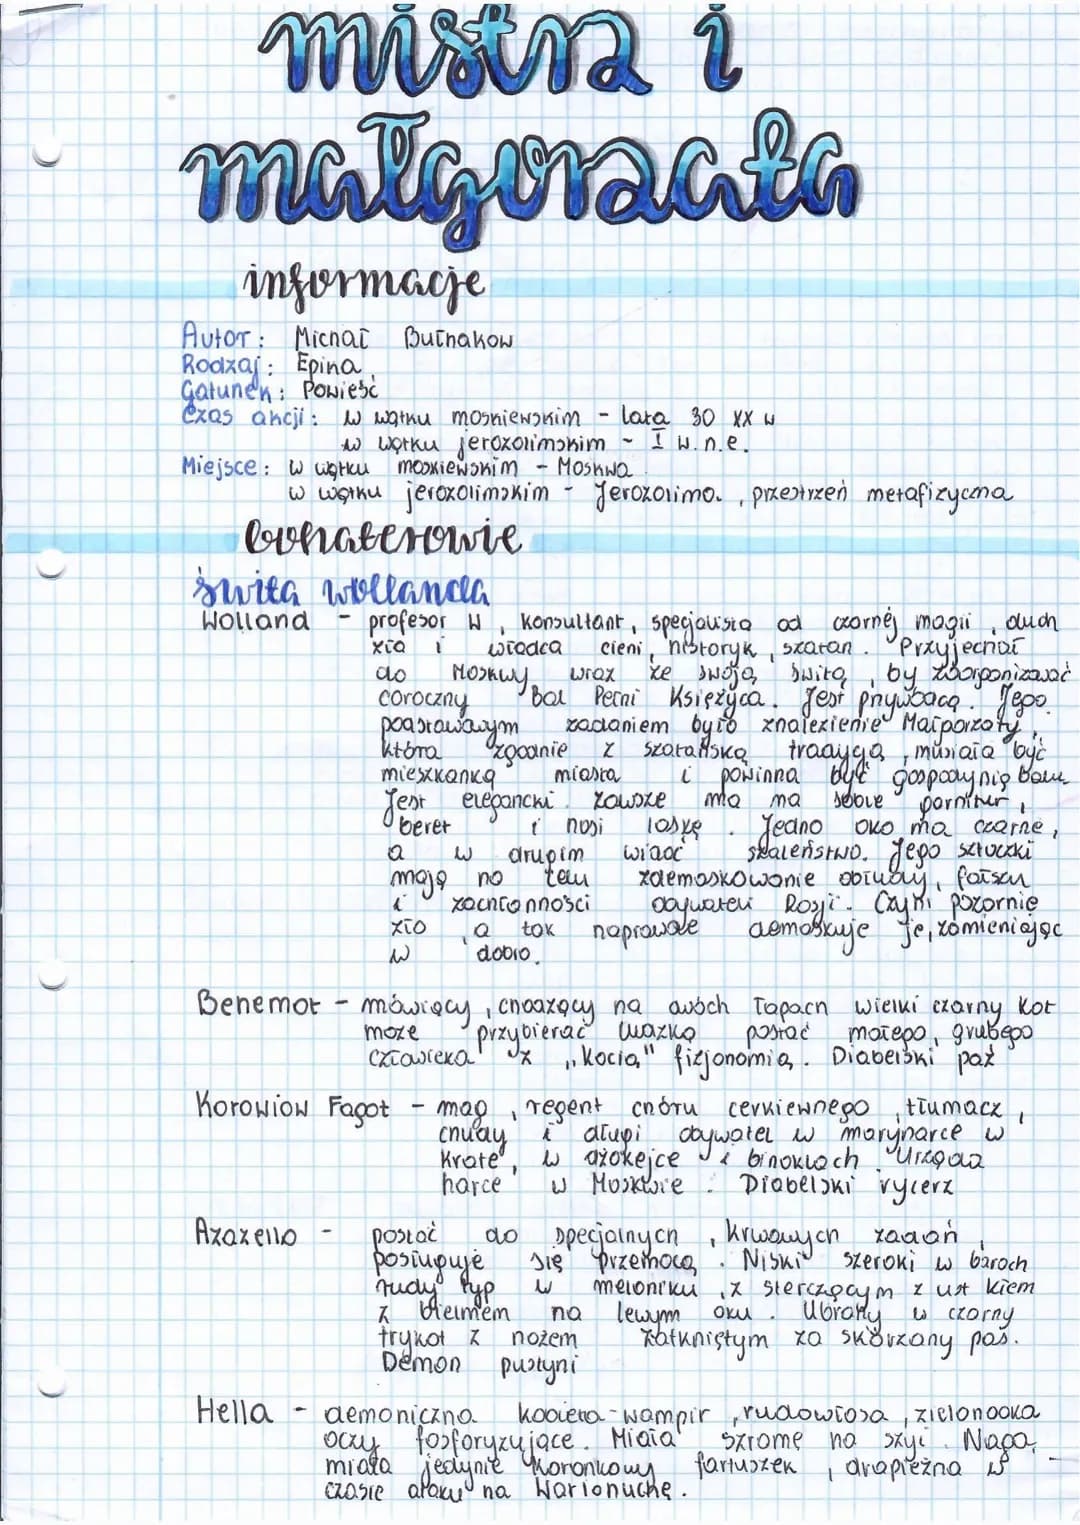 mistrz i
małgorzata
informacje
Autor: Michał Bułhakow
Rodzaj: Epika
Gatunek: Powieść
Czas akcji: w wątku moskiewskim - lata 30 XX w
w wątku jerozolimskim - I w. n.e.
Miejsce: w wątku moskiewskim - Moskwa
w wątku jerozolimskim - Jerozolima, przestrzeń metafizyczna
bohaterowie
świta wollanda
Wolland - profesor W, konsultant, specjalista od czarnej magii, duch
zła i władca cieni, historyk, szatan. Przyjechał
do Moskwy wraz ze swoją świtą, by zoorganizować
coroczny bal Pełni Księżyca. Jest
podstawowym zadaniem było znalezienie Małgorzaty,
która zgodnie z szatańską tradycją, musiała być
mieszkanką miasta i powinna być gospodynią balu.
Jest elegancki. Zawsze ma na sobie garnitur,
beret i nosi laskę. Jedno oko ma czarne,
a w drugim widać szaleństwo. Jego sztuczki
mają na celu zdemaskowanie obłudy, fałszu
i zachłanności obywateli Rosji. Czyni pozornie
zło, a tak naprawdę demaskuje je, zamieniając
w dobro.
Behemot - mówiący, chodzący na dwóch łapach wielki czarny kot
może przybierać ludzką postać małego, grubego
człowieka z „kocią" fizjonomią. Diabelski paź
Korowiow Fagot - mag, regent chóru cerkiewnego, tłumacz,
chudy i długi obywatel w marynarce w
kratę, w dżokejce i binoklach. Urządza
harce w Moskwie. Diabelski rycerz
Azazello - postać do specjalnych, krwawych zadań,
posługuje się przemocą. Niski szeroki w barach
rudy typ w meloniku, z sterczącym z ust kłem
z bielmem na lewym oku. Ubrany w czarny
trykot z nożem zatkniętym za skórzany pas.
Demon pustyni
Hella - demoniczna kobieta-wampir, rudowłosa, zielonooka
oczy fosforyzujące. Miała szramę na szyi. Naga,
miała jedynie koronkowy fartuszek, drapieżna w
czasie ataku na Warionuchę.